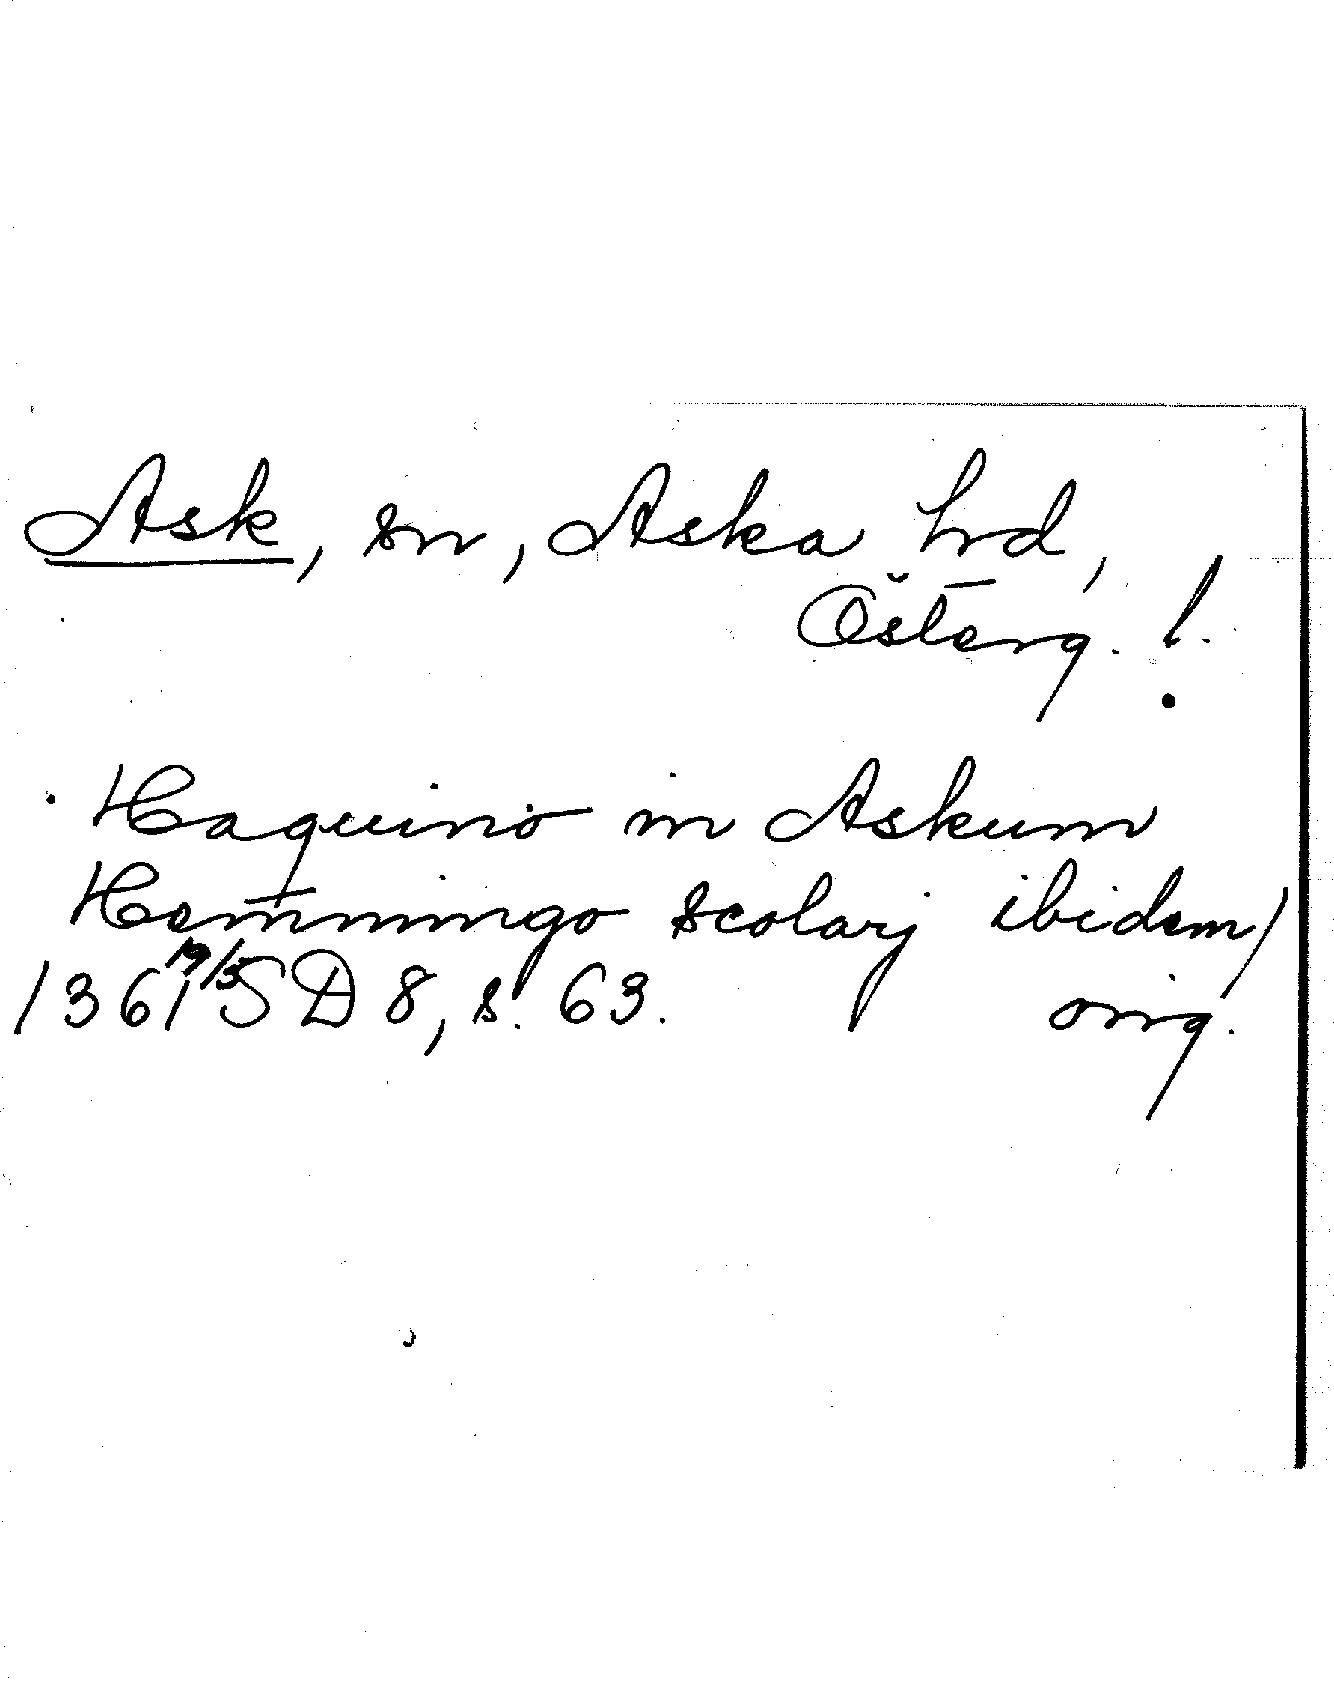 Ask, sn, Aska hrd,
Österg. !
Haquino in Askum
Hemmingo scolarj ibidem/
1361 19/5 SD 8, s. 63. orig.